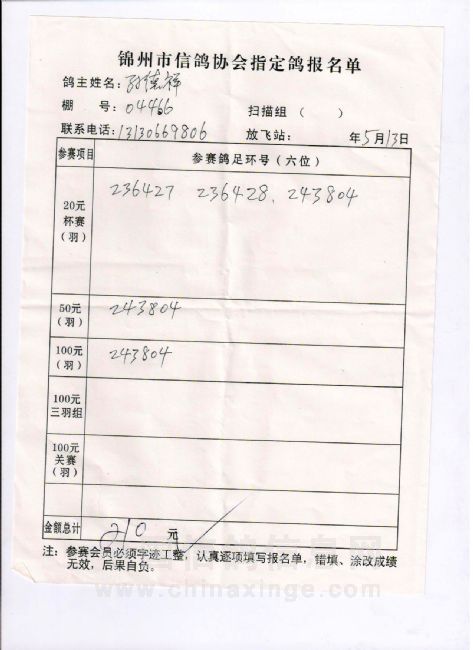 锦州市信鸽协会指定鸽报名单
鸽主姓名：孙德祥
棚　号：04466　扫描组（　）
联系电话：13130669806　放飞站：　年5月13日
参赛项目　参赛鸽足环号（六位）
20元杯赛（羽）　236427　236428、243804
50元（羽）　243804
100元（羽）　243804
100元三羽组
100元关赛（羽）
金额总计　210 元
注：参赛会员必须字迹工整，认真逐项填写报名单，错填、涂改成绩
无效，后果自负。
www.chinaxinge.com